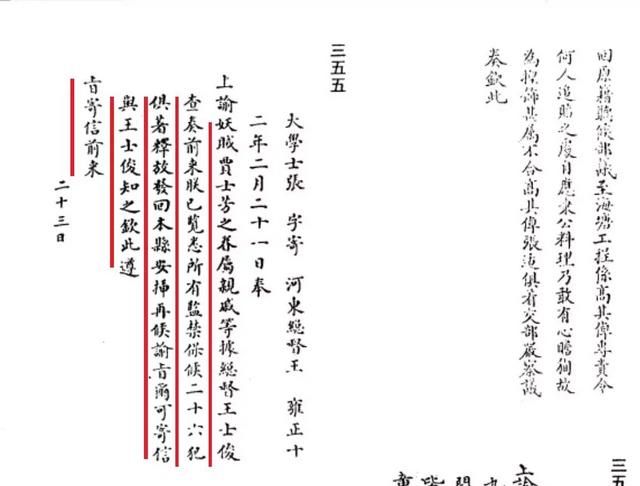 回原籍聽候部議至海塘工程係高其倬專責令
何人追賠之處自應秉公料理乃敢有心瞻徇故
為揑飾其屬不合高其倬張
俱着交部嚴察議
奏欽此
三五五
大學士張 字寄 河東總督王 雍正十
二年二月二十一日奉
上諭妖賊賈士芳之眷屬親戚等據總督王士俊
查奏前來朕已覽悉所有監禁保候二十六犯
俱著釋放發回本縣安插再候諭旨爾可寄信
與王士俊知之欽此遵
旨寄信前來
二十三日
三五
上諭